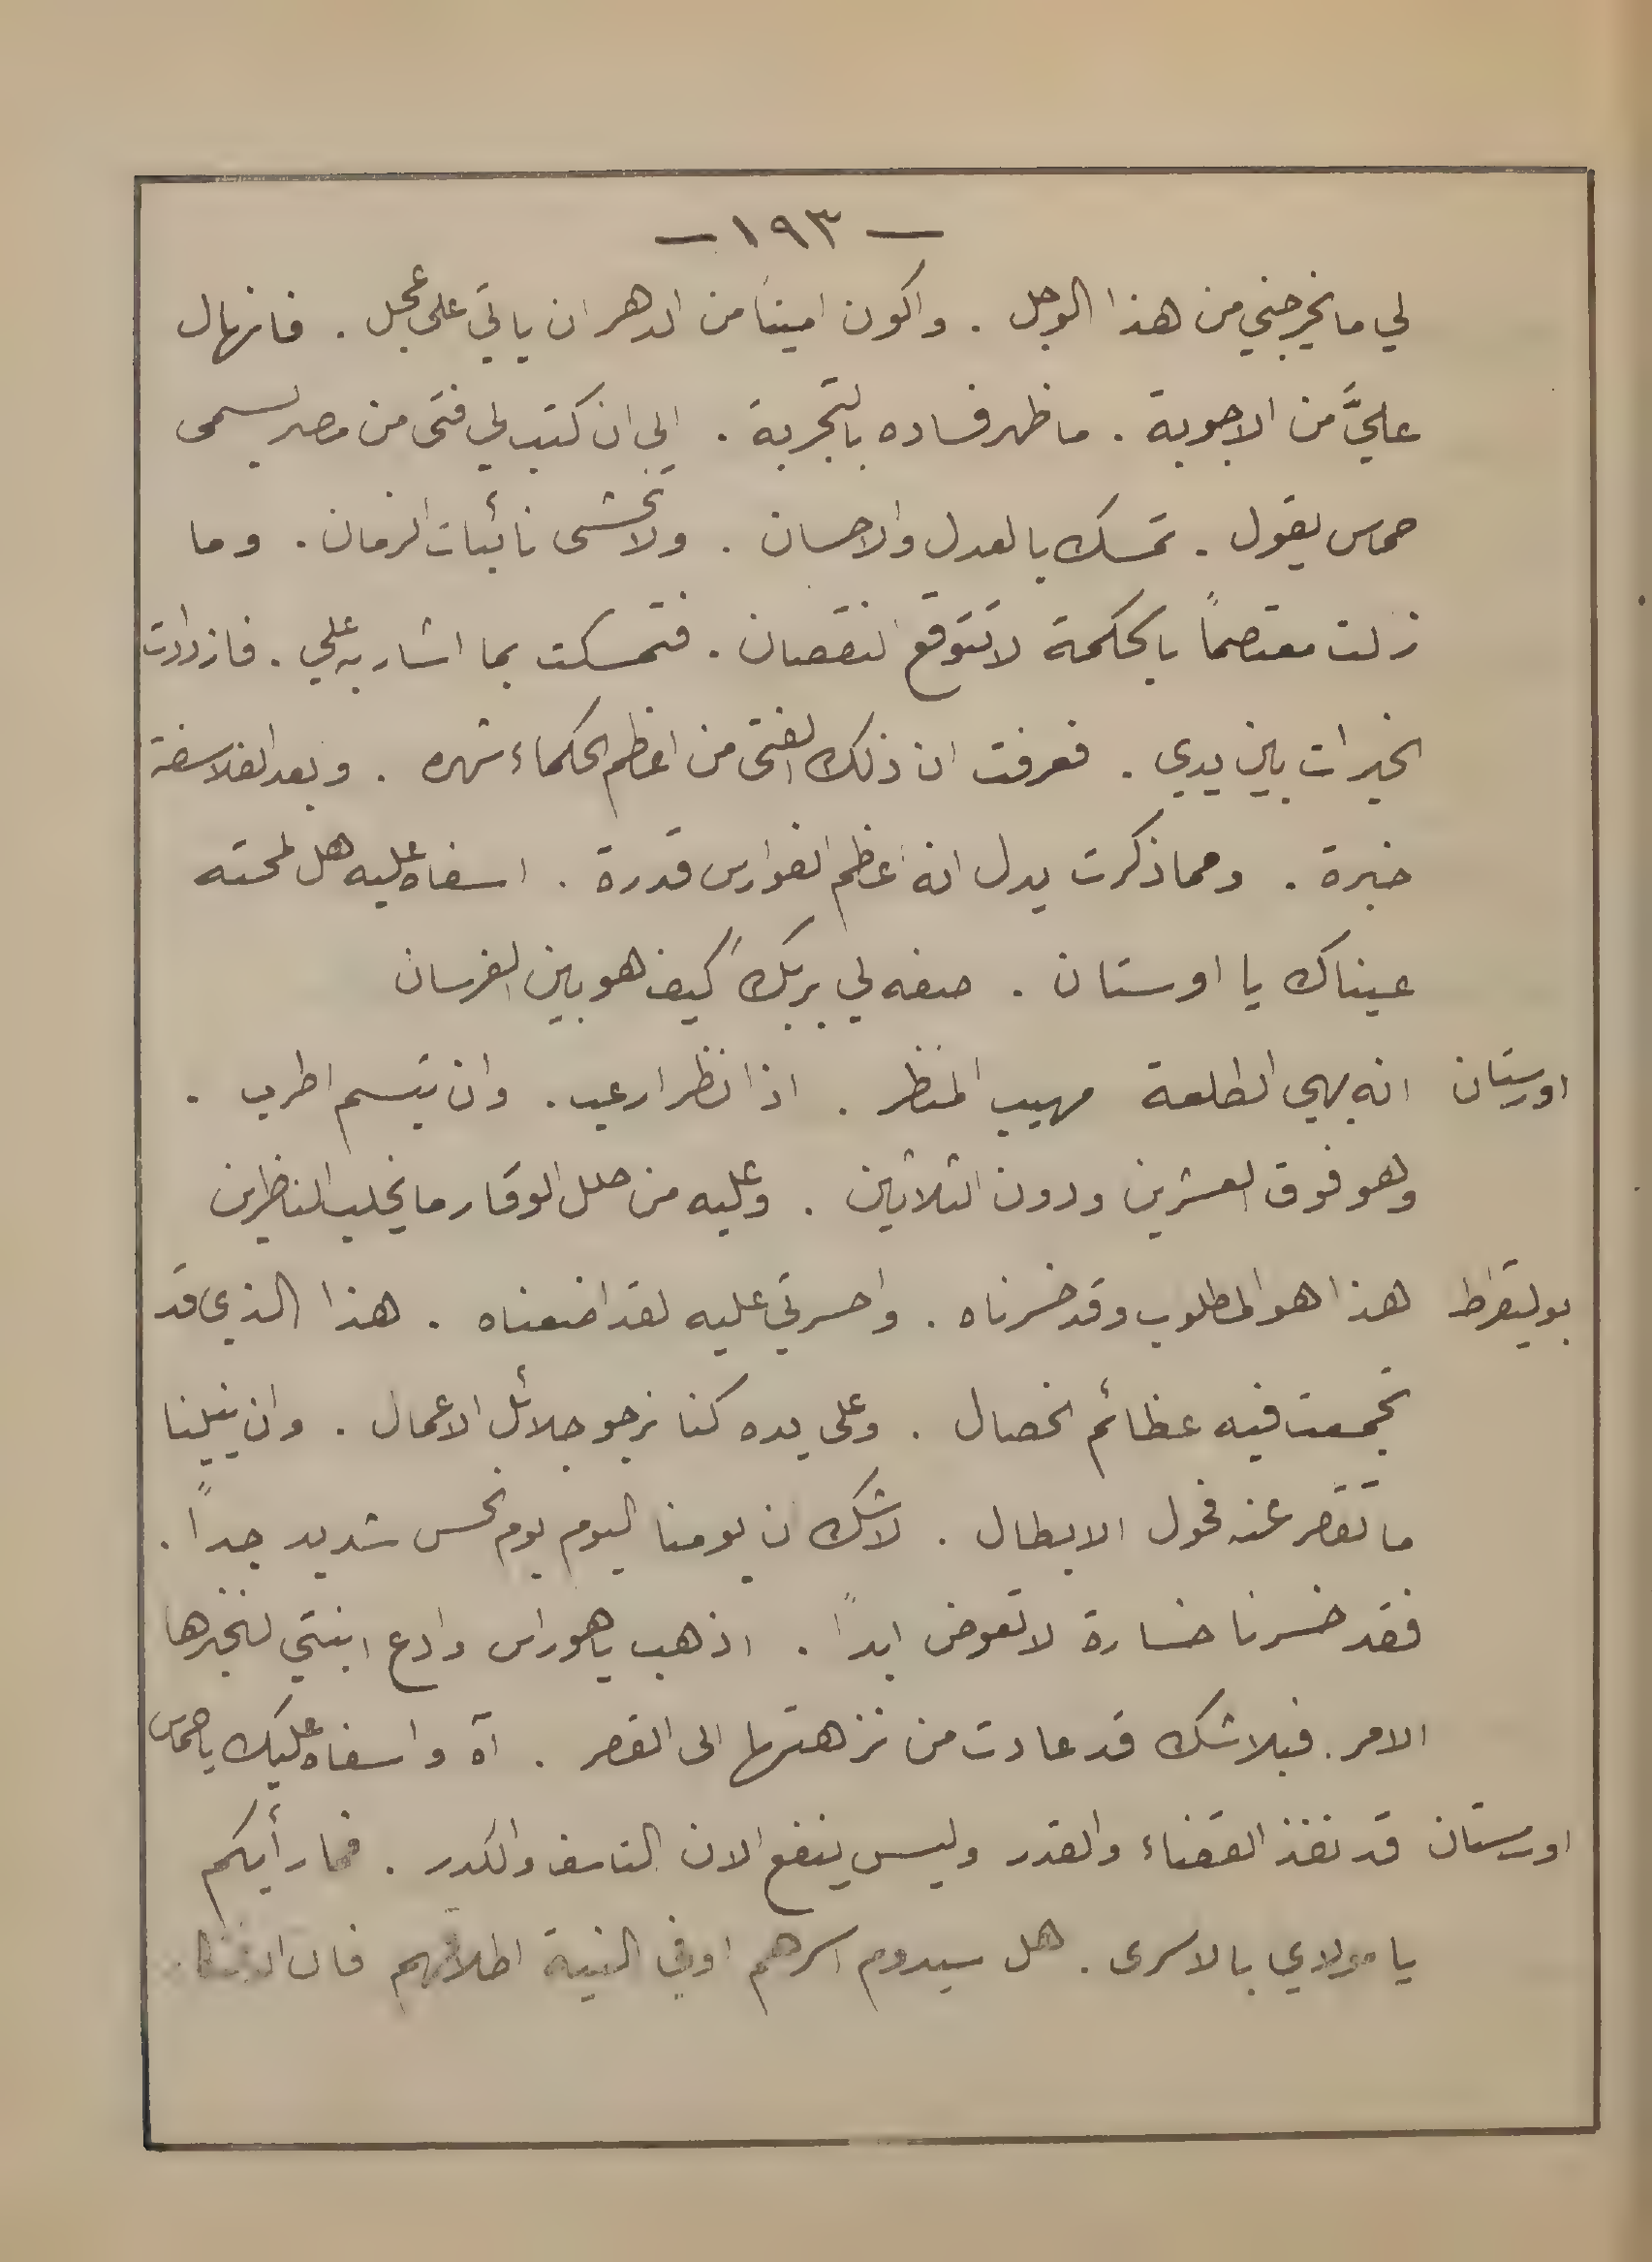 — ١٩٣ —
لي ما يخرجني من هذا الوجل . واكون امينًا من الدهر ان ياتي على عجل . فانهال
عليَّ من الاجوبة . ما ظهر فساده بالتجربة . الى ان كتب لي فتى من مصر يسمى
حماس يقول . تمسك بالعدل والاحسان . ولا تخشى نائبات الزمان . وما
زلت معتصمًا بالحكمة لا تتوقع النقصان . فتمسكت بما اشار به علي . فازدادت
الخيرات بين يدي . فعرفت ان ذلك الفتى من اعظم الحكماء شهره . وبعد الفلاسفة
خبرة . ومما ذكرت يدل انه اعظم الفوارس قدرة . اسفاه عليه هل لمحته
عيناك يا اوستان . صفه لي بربك كيف هو بين الفرسان
اورستان انه بهي الطلعة مهيب المنظر . اذا نظر ارعب . وان تبسم اطرب .
وهو فوق العشرين ودون الثلاثين . وعليه من حلل الوقار ما يخلب الناظرين
بوليقراط هذا هو المطلوب وقد خسرناه . واحسرتي عليه لقد اضعناه . هذا الذي قد
تجمعت فيه عظائم الخصال . وعلى يده كنا نرجو جلائل الاعمال . وان ينيلنا
ما تقصر عنه فحول الابطال . لا شك ان يومنا اليوم يوم نحس شديد جدًا .
فقد خسرنا خسارة لا تعوض ابدًا . اذهب يا هوراس وادع ابنتي لنخبرها
الامر . فبلا شك قد عادت من نزهتها الى القصر . آه وا اسفاه عليك يا حماس
اورستان قد نفذ القضاء والقدر وليس ينفع الان التاسف والكدر . فما رأيكم
يا مولاي بالاسرى . هل سيدوم اسرهم او في النية اطلاقهم فان